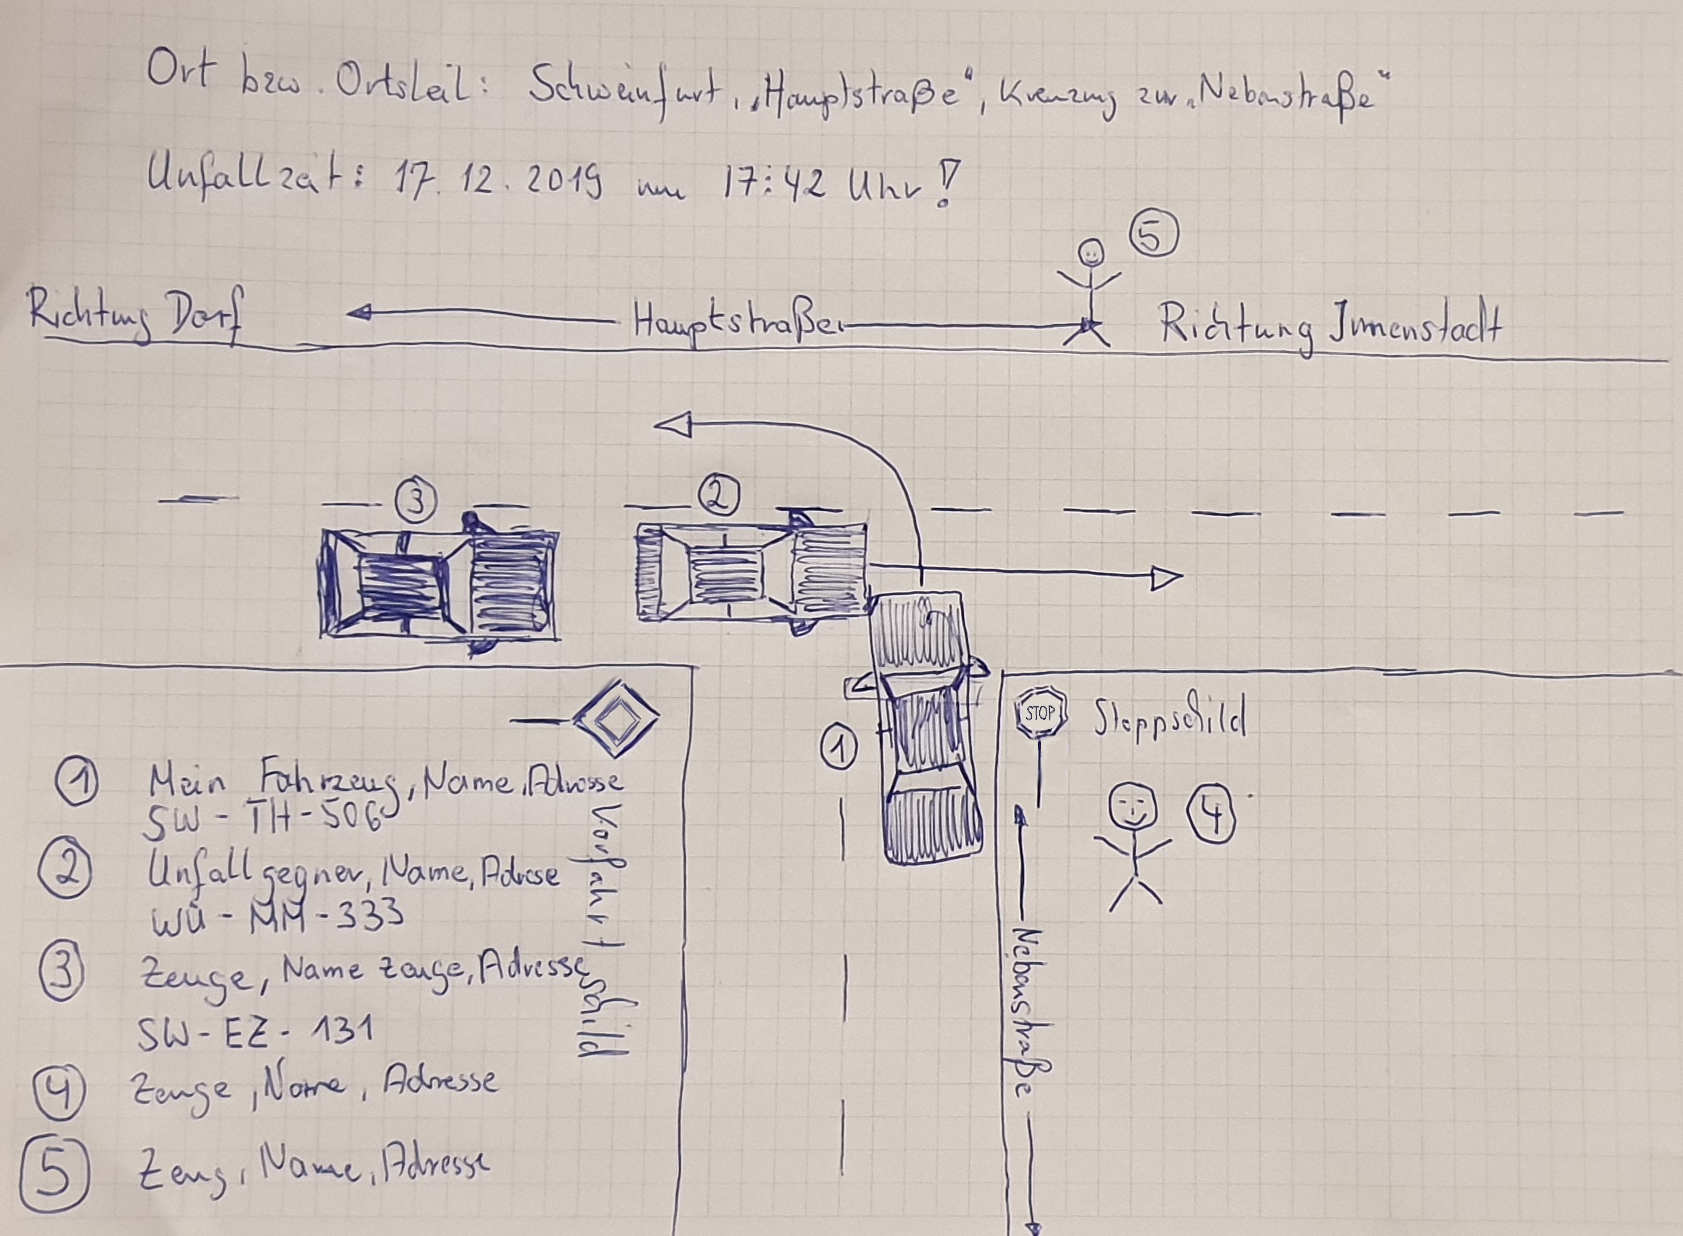 Ort bzw. Ortsteil: Schweinfurt, „Hauptstraße“, Kreuzung zur „Nebenstraße“
Unfallzeit: 17.12.2019 um 17:42 Uhr!
5
Richtung Dorf
Hauptstraße
Richtung Innenstadt
3
2
1
STOP
Stoppschild
4
Nebenstraße
Vorfahrtschild
1 Mein Fahrzeug, Name, Adresse
SW - TH - 506
2 Unfallgegner, Name, Adresse
WÜ - MM - 333
3 Zeuge, Name Zeuge, Adresse
SW - EZ - 131
4 Zeuge, Name, Adresse
5 Zeug, Name, Adresse